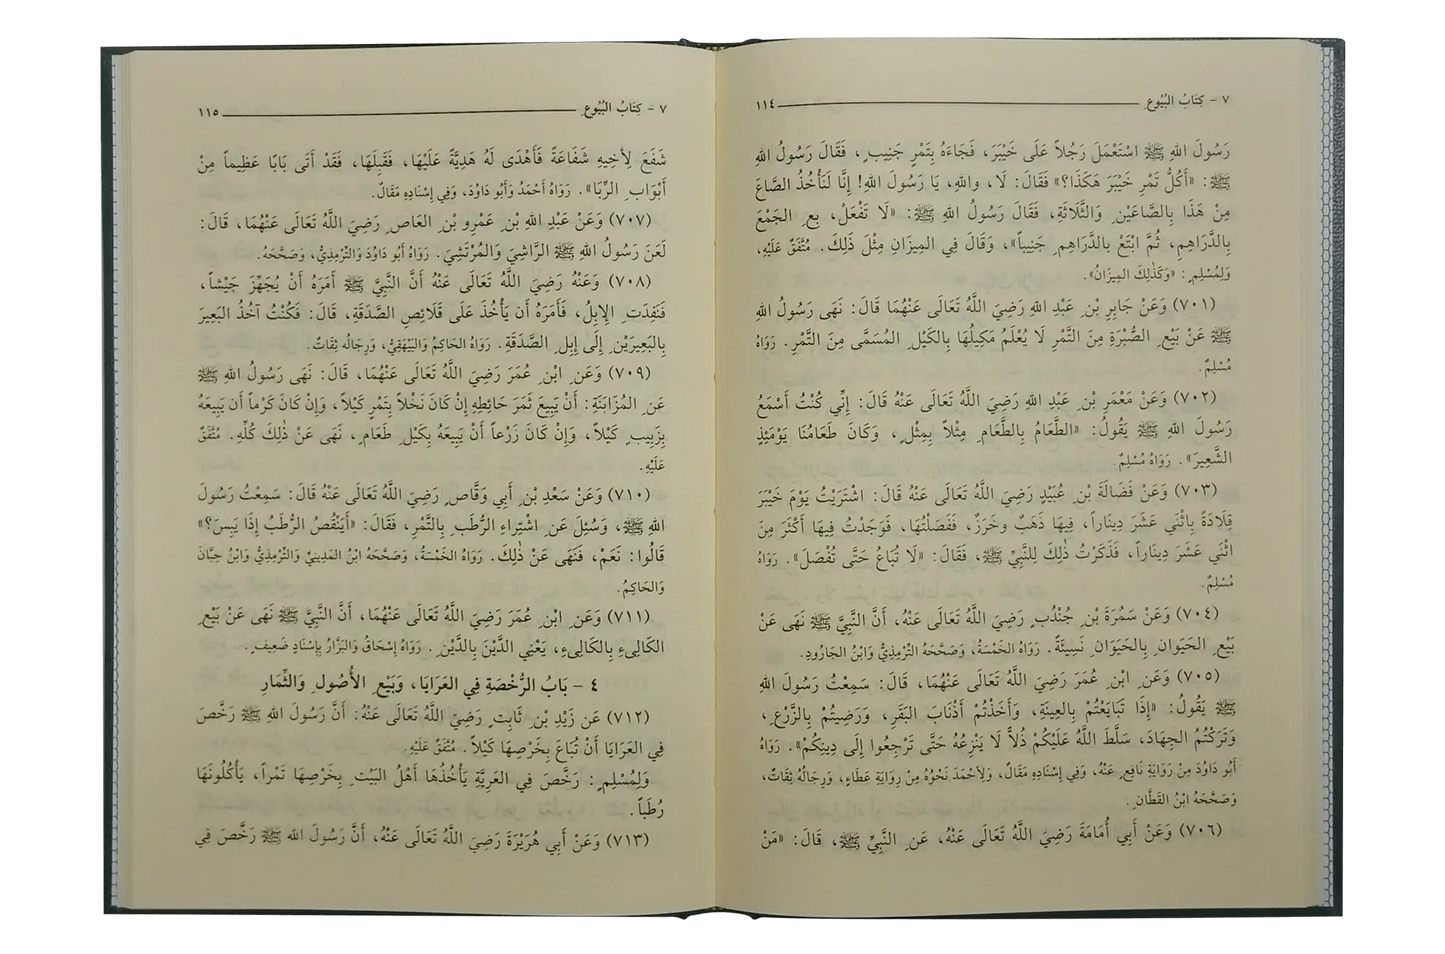 ٧ - كِتَابُ البُيُوعِ ١١٤
رَسُولَ اللهِ ﷺ اسْتَعْمَلَ رَجُلاً عَلَى خَيْبَرَ، فَجَاءَهُ بِتَمْرٍ جَنِيبٍ، فَقَالَ رَسُولُ اللهِ
ﷺ: «أَكُلُّ تَمْرِ خَيْبَرَ هَكَذَا؟» فَقَالَ: لَا، واللهِ، يَا رَسُولَ اللهِ! إِنَّا لَنَأْخُذُ الصَّاعَ
مِنْ هَذَا بِالصَّاعَيْنِ وَالثَّلَاثَةِ، فَقَالَ رَسُولُ اللهِ ﷺ: «لَا تَفْعَلْ، بِعِ الجَمْعَ
بِالدَّرَاهِمِ، ثُمَّ ابْتَعْ بِالدَّرَاهِمِ جَنِيباً»، وَقَالَ فِي المِيزَانِ مِثْلَ ذَلِكَ. مُتَّفَقٌ عَلَيْهِ،
وَلِمُسْلِمٍ: «وَكَذَلِكَ المِيزَانُ».
(٧٠١) وَعَنْ جَابِرِ بْنِ عَبْدِ اللهِ رَضِيَ اللَّهُ تَعَالَى عَنْهُمَا قَالَ: نَهَى رَسُولُ اللهِ
ﷺ عَنْ بَيْعِ الصُّبْرَةِ مِنَ التَّمْرِ لَا يُعْلَمُ مَكِيلُهَا بِالكَيْلِ المُسَمَّى مِنَ التَّمْرِ. رَوَاهُ
مُسْلِمٌ.
(٧٠٢) وَعَنْ مَعْمَرِ بْنِ عَبْدِ اللهِ رَضِيَ اللَّهُ تَعَالَى عَنْهُ قَالَ: إِنِّي كُنْتُ أَسْمَعُ
رَسُولَ اللهِ ﷺ يَقُولُ: «الطَّعَامُ بِالطَّعَامِ مِثْلاً بِمِثْلٍ، وَكَانَ طَعَامُنَا يَوْمَئِذٍ
الشَّعِيرَ». رَوَاهُ مُسْلِمٌ.
(٧٠٣) وَعَنْ فَضَالَةَ بْنِ عُبَيْدٍ رَضِيَ اللَّهُ تَعَالَى عَنْهُ قَالَ: اشْتَرَيْتُ يَوْمَ خَيْبَرَ
قِلَادَةً بِاثْنَي عَشَرَ دِينَاراً، فِيهَا ذَهَبٌ وخَرَزٌ، فَفَصَلْتُهَا، فَوَجَدْتُ فِيهَا أَكْثَرَ مِنَ
اثْنَي عَشَرَ دِينَاراً، فَذَكَرْتُ ذَٰلِكَ لِلنَّبِيِّ ﷺ، فَقَالَ: «لَا تُبَاعُ حَتَّى تُفْصَلَ». رَوَاهُ
مُسْلِمٌ.
(٧٠٤) وَعَنْ سَمُرَةَ بْنِ جُنْدُبٍ رَضِيَ اللَّهُ تَعَالَى عَنْهُ، أَنَّ النَّبِيَّ ﷺ نَهَى عَنْ
بَيْعِ الحَيَوَانِ بِالحَيَوَانِ نَسِيئَةً. رَوَاهُ الخَمْسَةُ، وَصَحَّحَهُ التِّرْمِذِيُّ وَابْنُ الجَارُودِ.
(٧٠٥) وَعَنِ ابْنِ عُمَرَ رَضِيَ اللَّهُ تَعَالَى عَنْهُمَا، قَالَ: سَمِعْتُ رَسُولَ اللهِ
ﷺ يَقُولُ: «إِذَا تَبَايَعْتُمْ بِالعِينَةِ، وَأَخَذْتُمْ أَذْنَابَ البَقَرِ، وَرَضِيتُمْ بِالزَّرْعِ،
وَتَرَكْتُمُ الجِهَادَ، سَلَّطَ اللَّهُ عَلَيْكُمْ ذُلاًّ لَا يَنْزِعُهُ حَتَّى تَرْجِعُوا إِلَى دِينِكُمْ». رَوَاهُ
أَبُو دَاوُدَ مِنْ رِوَايَةِ نَافِعٍ عَنْهُ، وَفِي إِسْنَادِهِ مَقَالٌ، وَلِأَحْمَدَ نَحْوُهُ مِنْ رِوَايَةِ عَطَاءٍ، وَرِجَالُهُ ثِقَاتٌ،
وَصَحَّحَهُ ابْنُ القَطَّانِ.
(٧٠٦) وَعَنْ أَبِي أُمَامَةَ رَضِيَ اللَّهُ تَعَالَى عَنْهُ، عَنِ النَّبِيِّ ﷺ، قَالَ: «مَنْ
٧ - كِتَابُ البُيُوعِ ١١٥
شَفَعَ لِأَخِيهِ شَفَاعَةً فَأَهْدَى لَهُ هَدِيَّةً عَلَيْهَا، فَقَبِلَهَا، فَقَدْ أَتَى بَابًا عَظِيماً مِنْ
أَبْوَابِ الرِّبَا». رَوَاهُ أَحْمَدُ وَأَبُو دَاوُدَ، وَفِي إِسْنَادِهِ مَقَالٌ.
(٧٠٧) وَعَنْ عَبْدِ اللهِ بْنِ عَمْرِو بْنِ العَاصِ رَضِيَ اللَّهُ تَعَالَى عَنْهُمَا، قَالَ:
لَعَنَ رَسُولُ اللهِ ﷺ الرَّاشِيَ وَالمُرْتَشِيَ. رَوَاهُ أَبُو دَاوُدَ وَالتِّرْمِذِيُّ، وَصَحَّحَهُ.
(٧٠٨) وَعَنْهُ رَضِيَ اللَّهُ تَعَالَى عَنْهُ أَنَّ النَّبِيَّ ﷺ أَمَرَهُ أَنْ يُجَهِّزَ جَيْشاً،
فَنَفِدَتِ الإِبِلُ، فَأَمَرَهُ أَن يَأْخُذَ عَلَى قَلَائِصِ الصَّدَقَةِ، قَالَ: فَكُنْتُ آخُذُ البَعِيرَ
بِالبَعِيرَيْنِ إِلَى إِبِلِ الصَّدَقَةِ. رَوَاهُ الحَاكِمُ وَالبَيْهَقِيُّ، وَرِجَالُه ثِقَاتٌ.
(٧٠٩) وَعَنِ ابْنِ عُمَرَ رَضِيَ اللَّهُ تَعَالَى عَنْهُمَا، قَالَ: نَهَى رَسُولُ اللهِ ﷺ
عَنِ المُزَابَنَةِ: أَنْ يَبِيعَ ثَمَرَ حَائِطِهِ إِنْ كَانَ نَخْلاً بِتَمْرٍ كَيْلاً، وَإِنْ كَانَ كَرْماً أَن يَبِيعَهُ
بِزَبِيبٍ كَيْلاً، وَإِنْ كَانَ زَرْعاً أَنْ يَبِيعَهُ بِكَيْلِ طَعَامٍ، نَهَى عَنْ ذَٰلِكَ كُلِّهِ. مُتَّفَقٌ
عَلَيْهِ.
(٧١٠) وَعَنْ سَعْدِ بْنِ أَبِي وَقَّاصٍ رَضِيَ اللَّهُ تَعَالَى عَنْهُ قَالَ: سَمِعْتُ رَسُولَ
اللهِ ﷺ، وَسُئِلَ عَنِ اشْتِرَاءِ الرُّطَبِ بِالتَّمْرِ، فَقَالَ: «أَيَنْقُصُ الرُّطَبُ إِذَا يَبِسَ؟»
قَالُوا: نَعَمْ، فَنَهَى عَنْ ذَٰلِكَ. رَوَاهُ الخَمْسَةُ، وَصَحَّحَهُ ابْنُ المَدِينِيِّ وَالتِّرْمِذِيُّ وَابْنُ حِبَّانَ
وَالحَاكِمُ.
(٧١١) وَعَنِ ابْنِ عُمَرَ رَضِيَ اللَّهُ تَعَالَى عَنْهُمَا، أَنَّ النَّبِيَّ ﷺ نَهَى عَنْ بَيْعِ
الكَالِىءِ بِالكَالِىءِ، يَعْنِي الدَّيْنَ بِالدَّيْنِ. رَوَاهُ إِسْحَاقُ وَالبَزَّارُ بِإِسْنَادٍ ضَعِيفٍ.
٤ - بَابُ الرُّخْصَةِ فِي العَرَايَا، وَبَيْعِ الأُصُولِ وَالثِّمَارِ
(٧١٢) عَن زَيْدِ بْنِ ثَابِتٍ رَضِيَ اللَّهُ تَعَالَى عَنْهُ: أَنَّ رَسُولَ اللهِ ﷺ رَخَّصَ
فِي العَرَايَا أَنْ تُبَاعَ بِخَرْصِهَا كَيْلاً. مُتَّفَقٌ عَلَيْهِ.
وَلِمُسْلِمٍ: رَخَّصَ فِي العَرِيَّةِ يَأْخُذُهَا أَهْلُ البَيْتِ بِخَرْصِهَا تَمْراً، يَأْكُلُونَهَا
رُطَباً.
(٧١٣) وَعَنْ أَبِي هُرَيْرَةَ رَضِيَ اللَّهُ تَعَالَى عَنْهُ، أَنَّ رَسُولَ الله ﷺ رَخَّصَ فِي